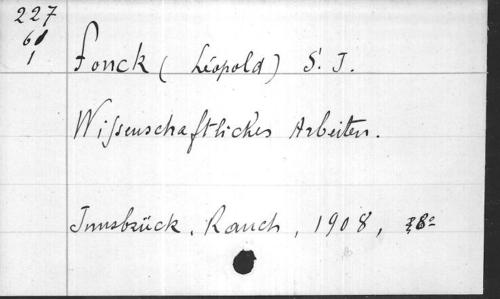 227
60
1
Fonck (Léopold) S. J.
Wissenschaftliches Arbeiten.
Innsbrück, Rauch, 1908, 8º